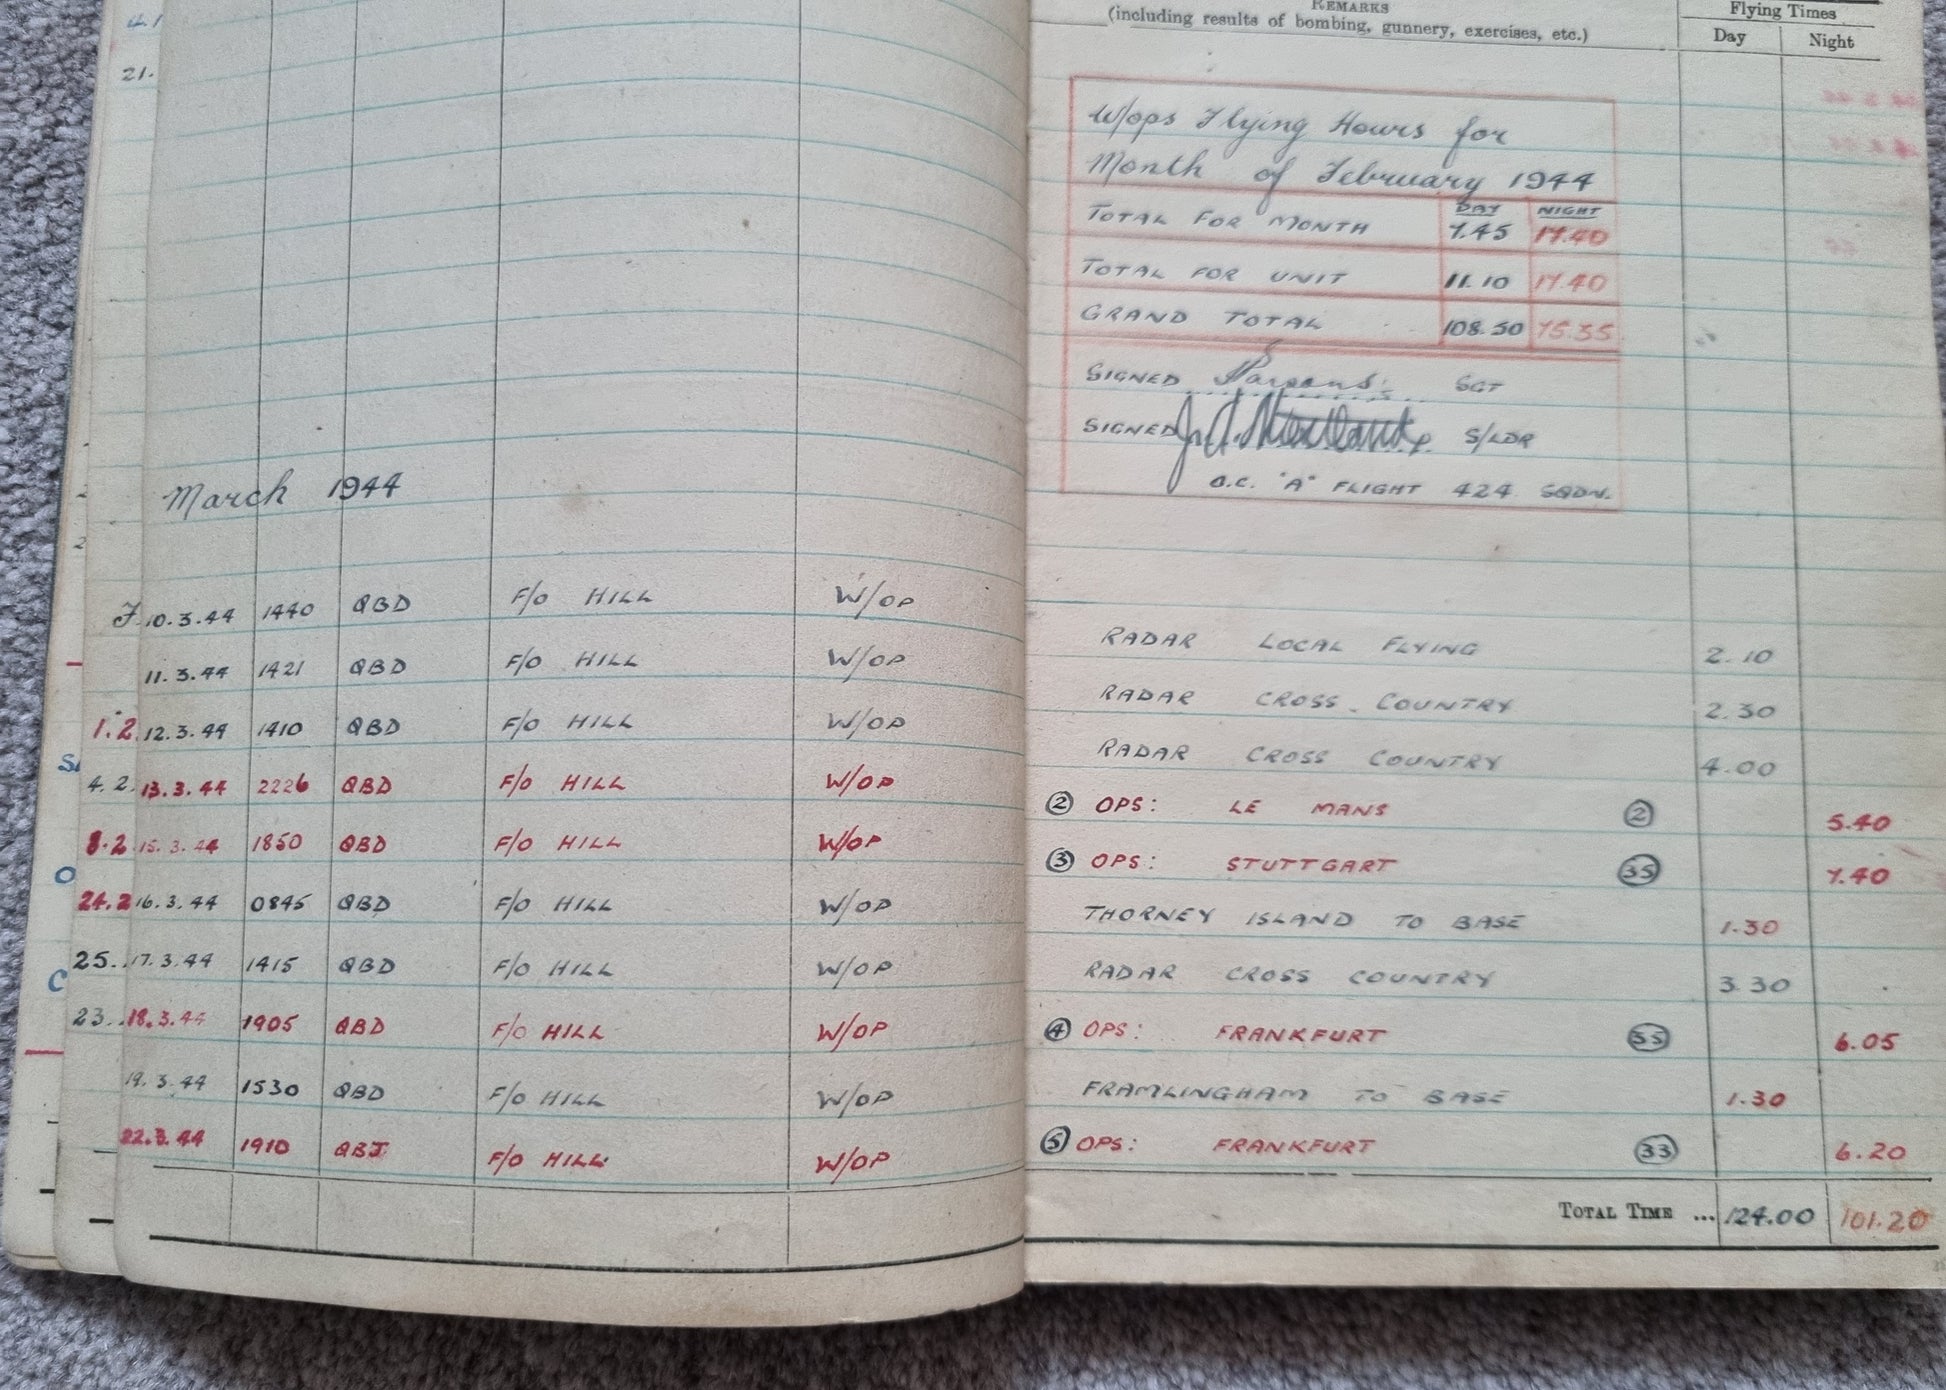 REMARKS
(including results of bombing, gunnery, exercises, etc.)
Flying Times
Day Night
W/ops Flying Hours for
Month of February 1944
DAY NIGHT
TOTAL FOR MONTH 7.45 17.40
TOTAL FOR UNIT 11.10 17.40
GRAND TOTAL 108.50 75.35
SIGNED Parsons SGT
SIGNED S/LDR
O.C. "A" FLIGHT 424 SQDN.
March 1944
10.3.44 1440 QBD F/O HILL W/OP RADAR LOCAL FLYING 2.10
11.3.44 1421 QBD F/O HILL W/OP RADAR CROSS COUNTRY 2.30
1.2 12.3.44 1410 QBD F/O HILL W/OP RADAR CROSS COUNTRY 4.00
4.2. 13.3.44 2226 QBD F/O HILL W/OP 2 OPS: LE MANS 2 5.40
8.2 15.3.44 1850 QBD F/O HILL W/OP 3 OPS: STUTTGART 35 7.40
24.2 16.3.44 0845 QBD F/O HILL W/OP THORNEY ISLAND TO BASE 1.30
25. 17.3.44 1415 QBD F/O HILL W/OP RADAR CROSS COUNTRY 3.30
23. 18.3.44 1905 QBD F/O HILL W/OP 4 OPS: FRANKFURT 35 6.05
19.3.44 1530 QBD F/O HILL W/OP FRAMLINGHAM TO BASE 1.30
22.3.44 1910 QBJ F/O HILL W/OP 5 OPS: FRANKFURT 33 6.20
TOTAL TIME ... 124.00 101.20